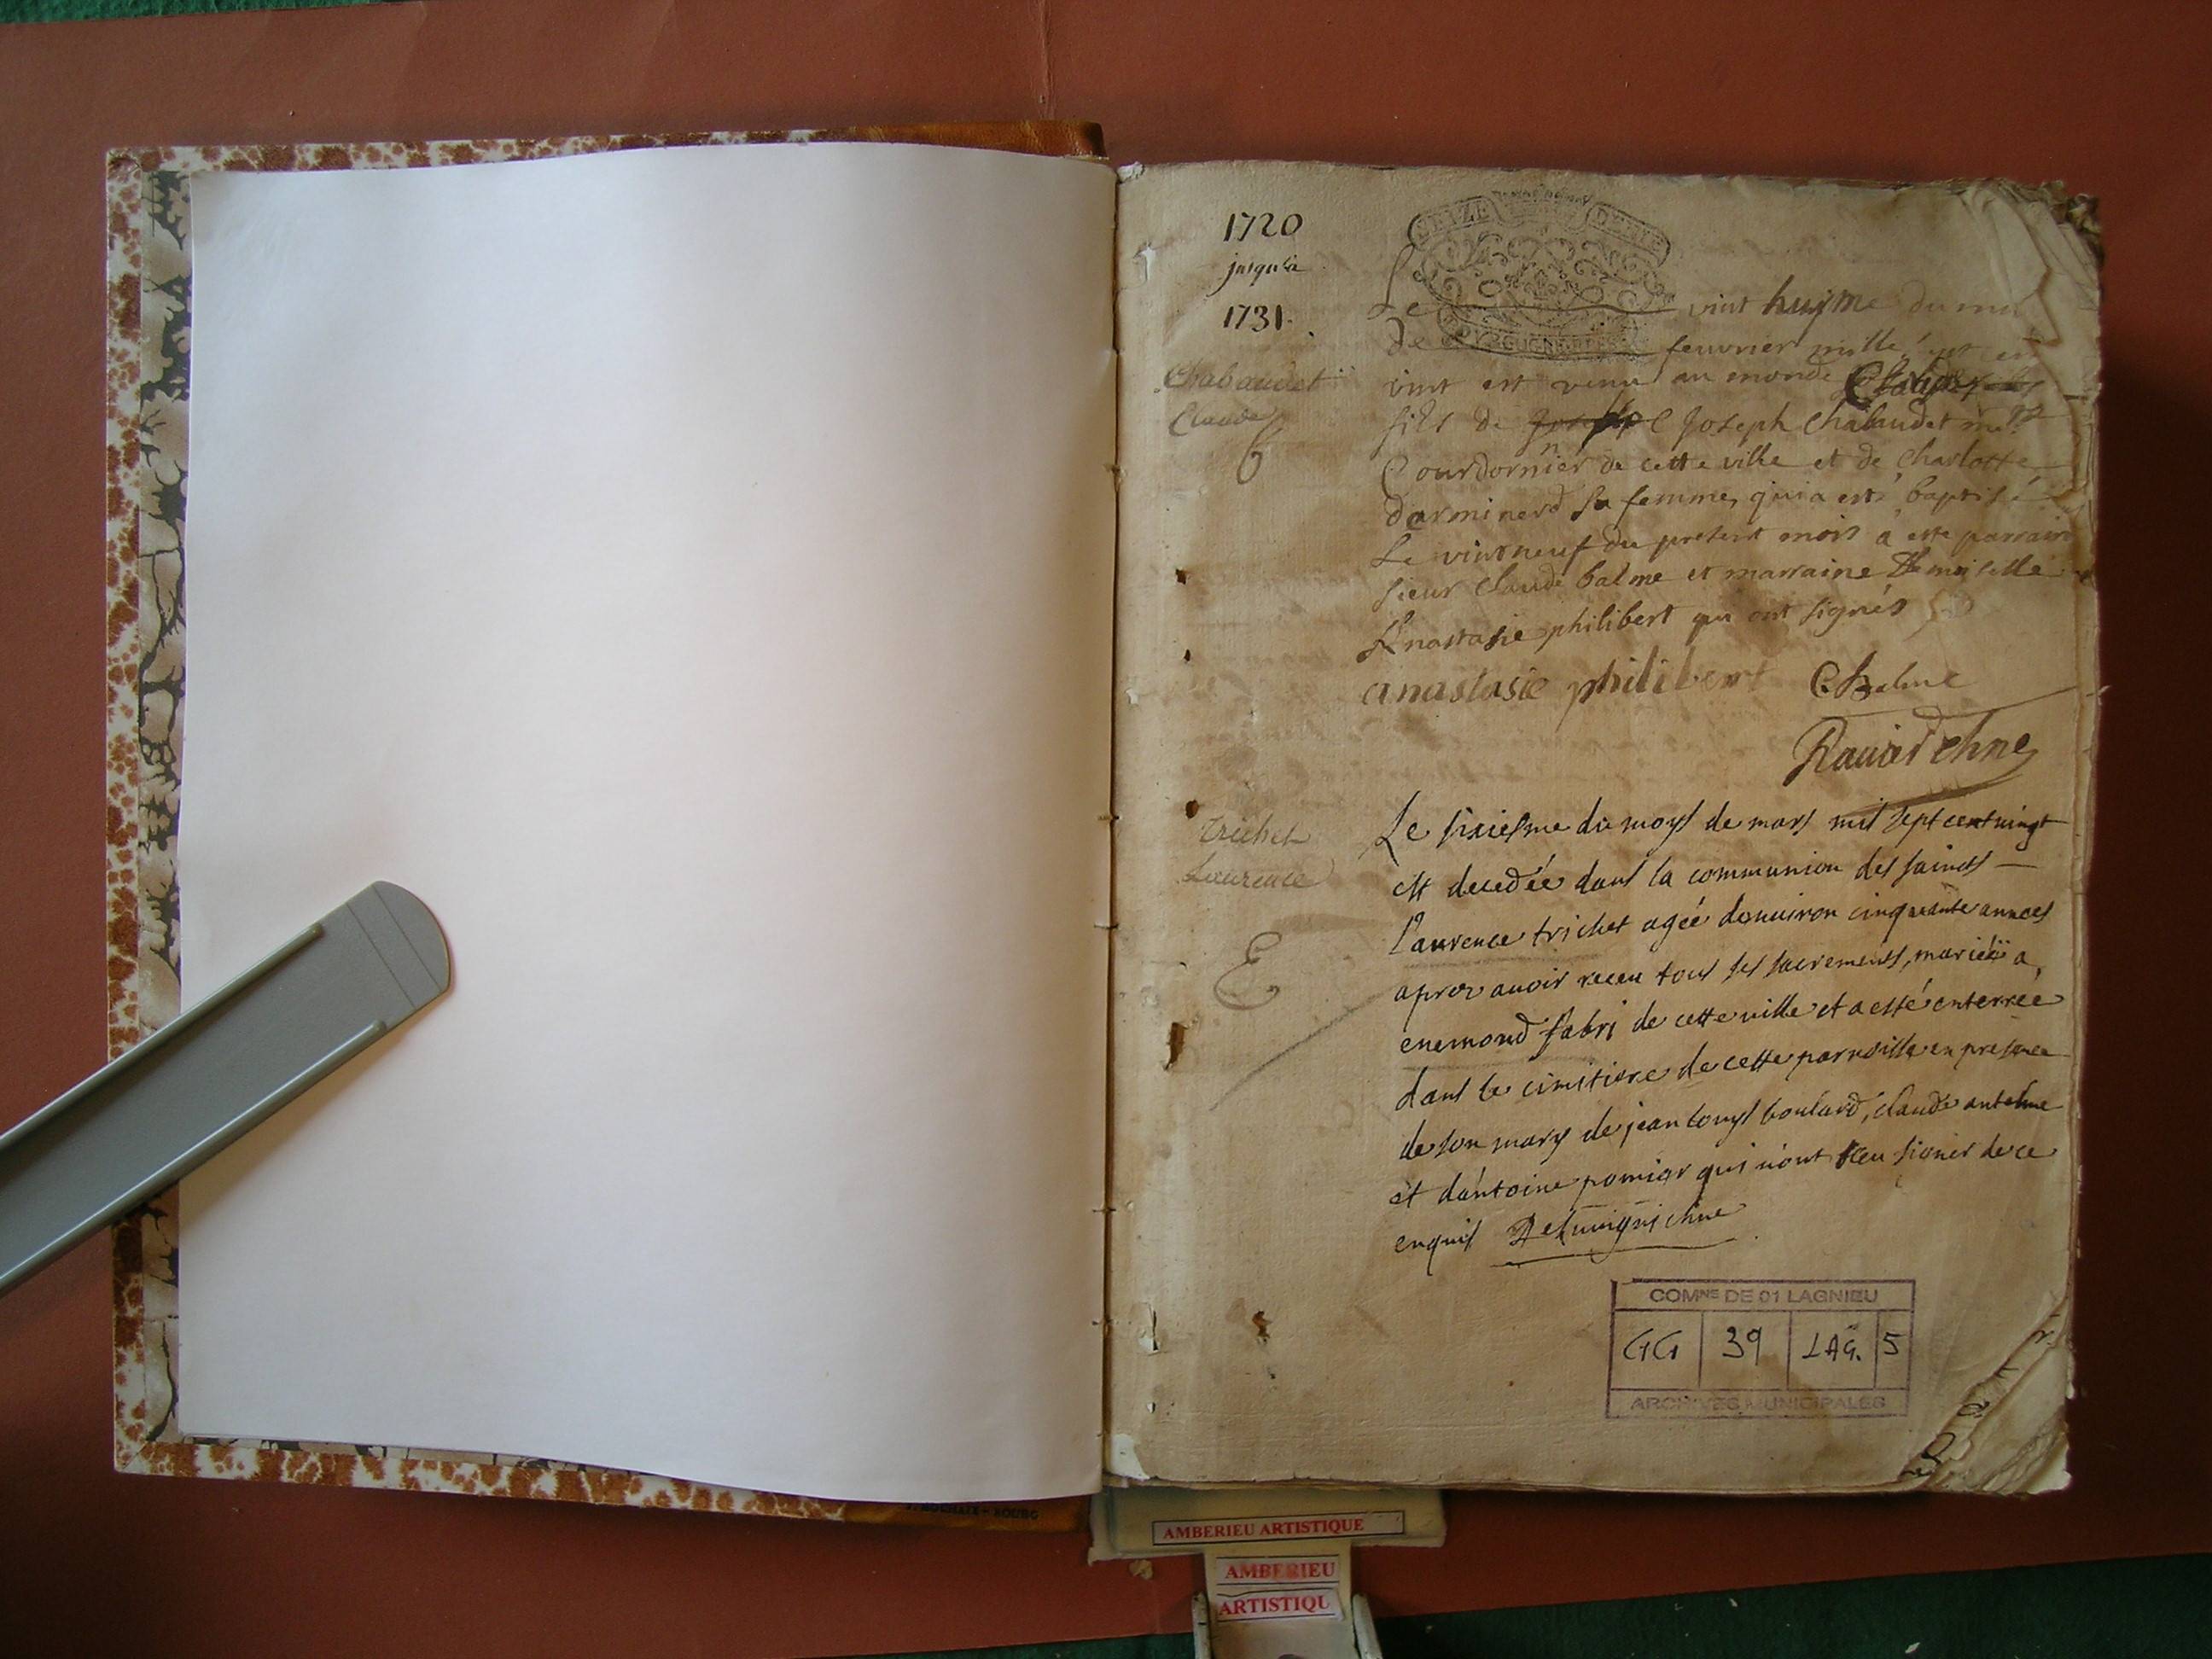 1720
jusqu'a
1731
SEIZE DENIE
Le vint huijme du
de feuvrier mille sept cent
Chabaudet
vint est venu au monde Claude
Claude
fils de Joseph Chabaudet
Courdornier de cette ville et de Charlotte
6
darminerd sa femme, qui a esté baptisé
Le vint neuf du present mois a este parrain
sieur Claude balme et marraine Demoiselle
Anastasie philibert qui ont signés
anastasie philibert CBalme
Rauier chne
Le sixiesme du moys de mars mil sept cent vingt
Trichet
Laurence
est decedée dans la communion des saincts
Laurence trichet agée denuiron cinquante années
E
aprez auoir receu tous ses sacrements, mariée a
enemond fabri de cette ville et a esté enterrée
dans le cimitiere de cette parroisse en presence
de son mary de jean louys boulard, claude antelme
et dantoine pomier qui n'ont sceu signer de ce
enquis chne
COMNE DE 01 LAGNIEU
GG 39 LAG. 5
ARCHIVES MUNICIPALES
BOURG
AMBERIEU ARTISTIQUE
AMBERIEU
ARTISTIQU